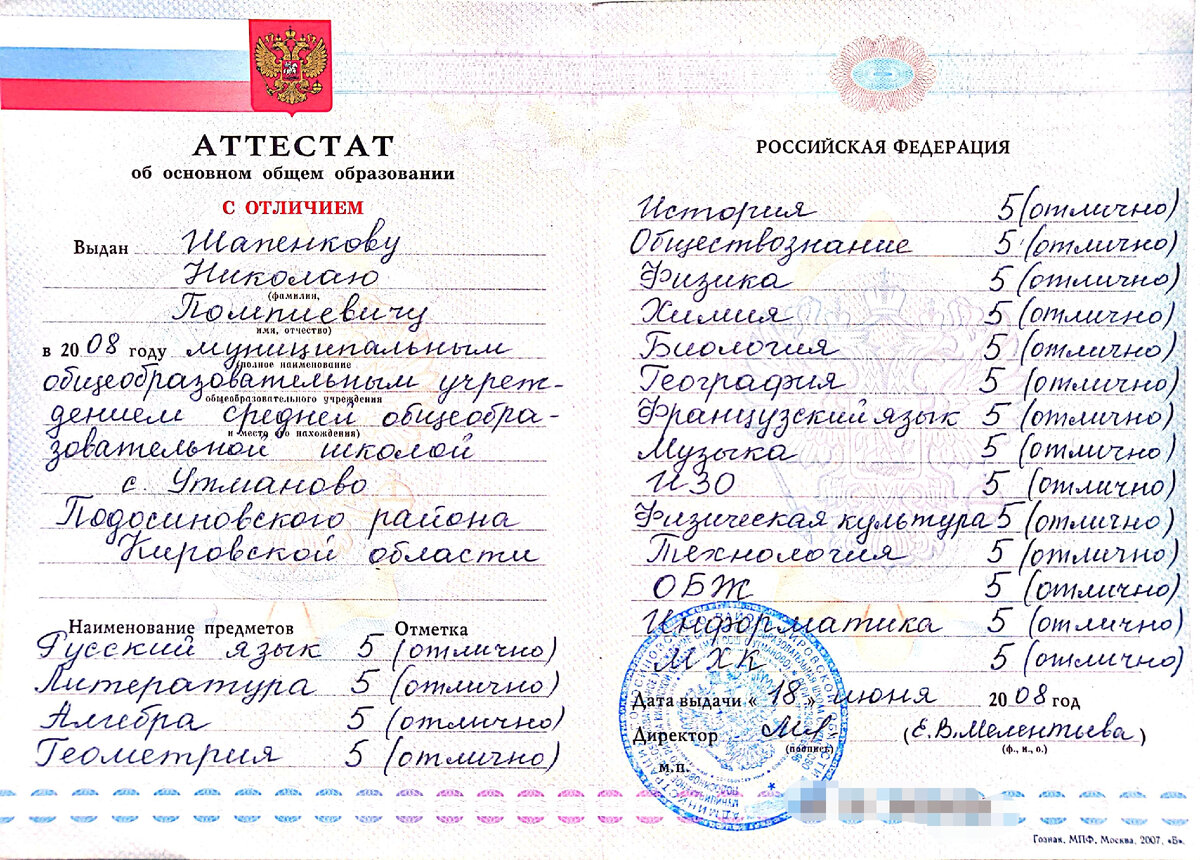 АТТЕСТАТ
об основном общем образовании
С ОТЛИЧИЕМ
Выдан Шапенкову
Николаю
(фамилия,
Помпиевичу
имя, отчество)
в 2008 году муниципальным
(полное наименование
общеобразовательным учреж-
общеобразовательного учреждения
дением средней общеобра-
и место его нахождения)
зовательной школой
с. Утманово
Подосиновского района
Кировской области
Наименование предметов Отметка
Русский язык 5 (отлично)
Литература 5 (отлично)
Алгебра 5 (отлично)
Геометрия 5 (отлично)
РОССИЙСКАЯ ФЕДЕРАЦИЯ
История 5 (отлично)
Обществознание 5 (отлично)
Физика 5 (отлично)
Химия 5 (отлично)
Биология 5 (отлично)
География 5 (отлично)
Французский язык 5 (отлично)
Музыка 5 (отлично)
ИЗО 5 (отлично)
Физическая культура 5 (отлично)
Технология 5 (отлично)
ОБЖ 5 (отлично)
Информатика 5 (отлично)
МХК 5 (отлично)
Дата выдачи « 18 » июня 2008 год
Директор (Е.В.Мелентьева)
(подпись) (ф., и., о.)
м.п.
Гознак, МПФ, Москва, 2007, «Б».